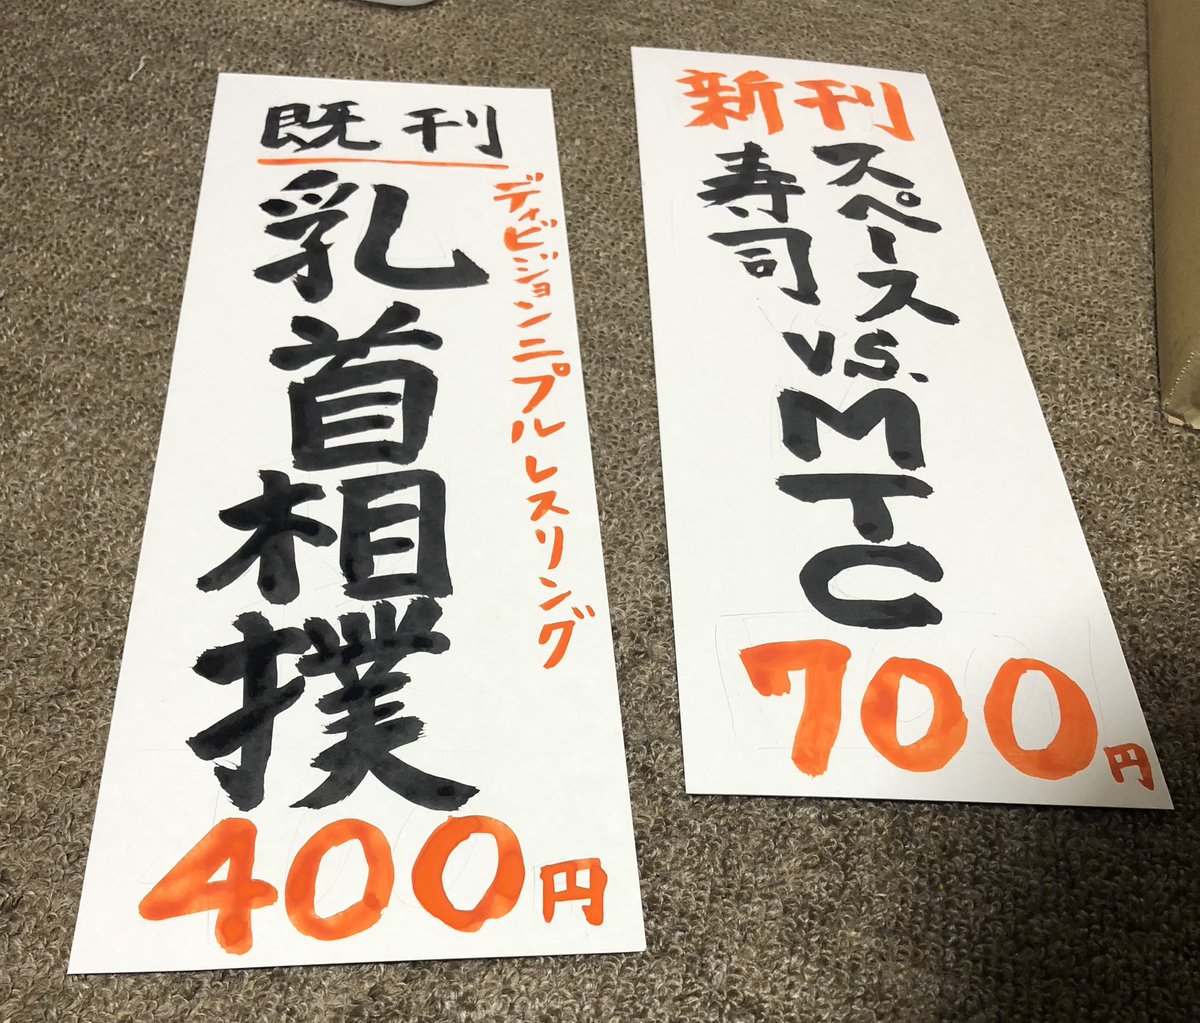 既刊
ディビジョンニプルレスリング
乳首相撲
400円
新刊
スペース
寿司
vs.
MTC
700円